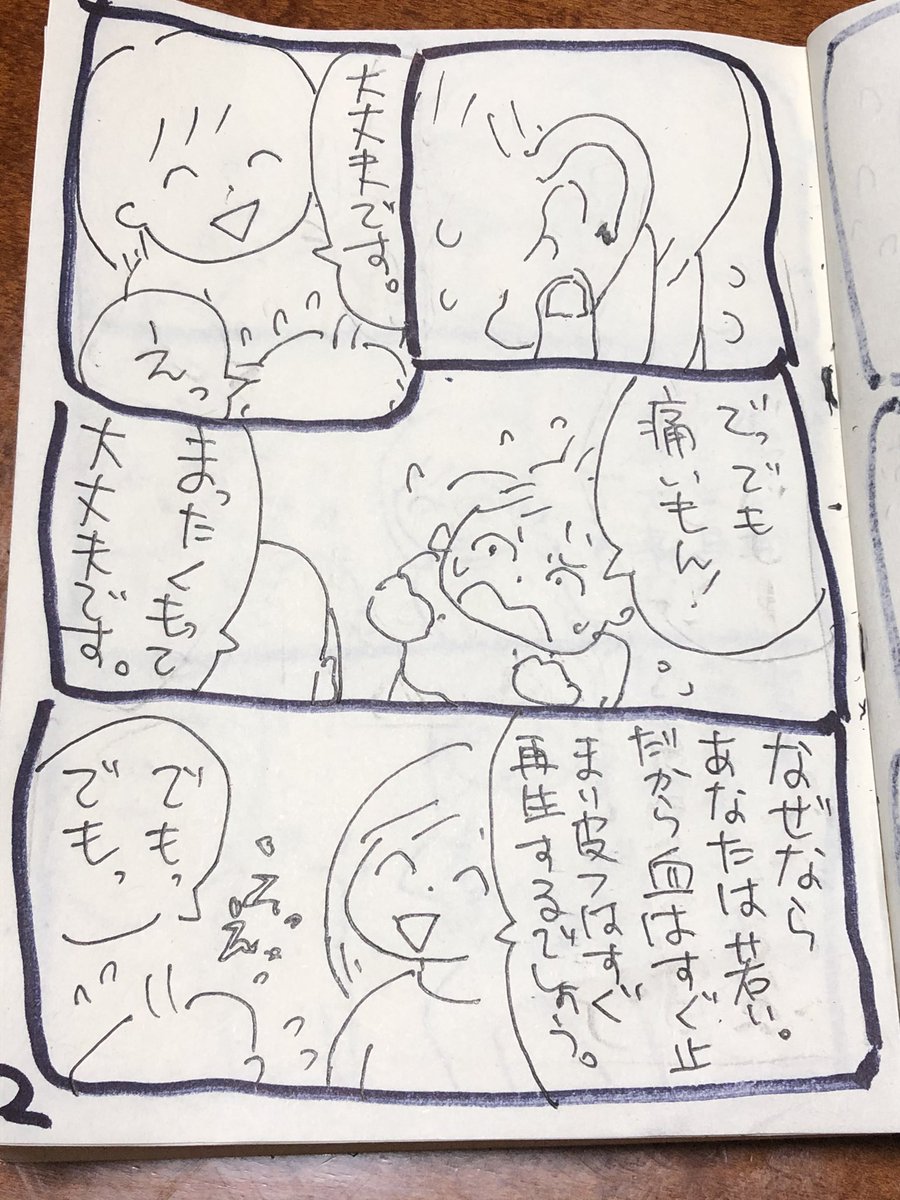 大丈夫です。
えっ
でっでも
痛いもん!
まったくもって
大丈夫です。
なぜなら
あなたは若い。
だから血はすぐ止
まり皮フはすぐ
再生するでしょう。
えん
えん
でもっ
でもっ
2